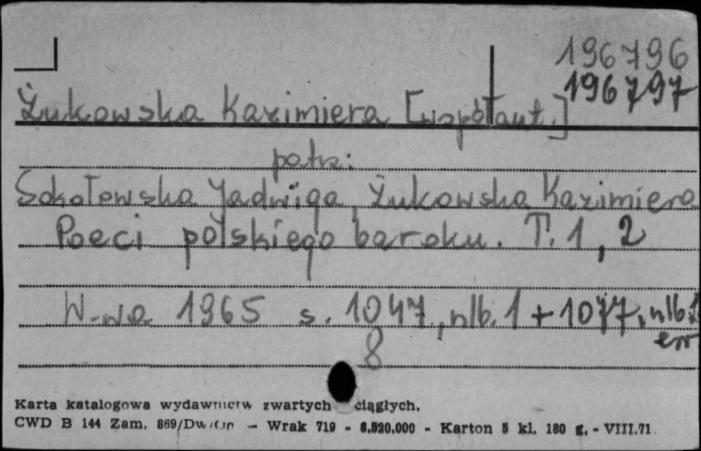 196796
196797
Żukowska Kazimiera [współaut.]
patrz:
Sokołowska Jadwiga, Żukowska Kazimiera
Poeci polskiego baroku. T. 1, 2
W-wa 1965 s. 1047, nlb. 1 + 1077, nlb. 1
err
8
Karta katalogowa wydawnictw zwartych ciągłych.
CWD B 144 Zam. 869/Dw — Wrak 719 - 6.520.000 - Karton 5 kl. 180 g. - VIII.71